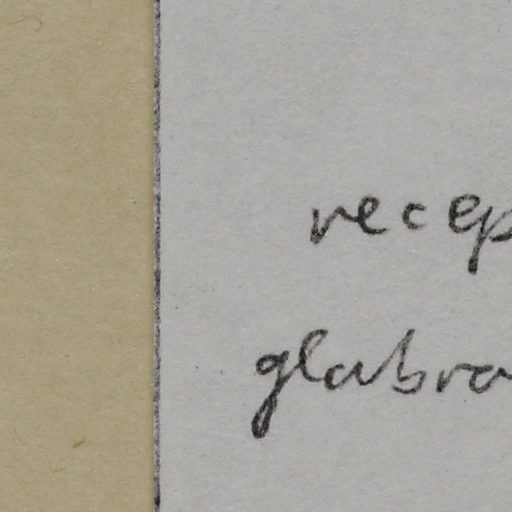 recep
glabra